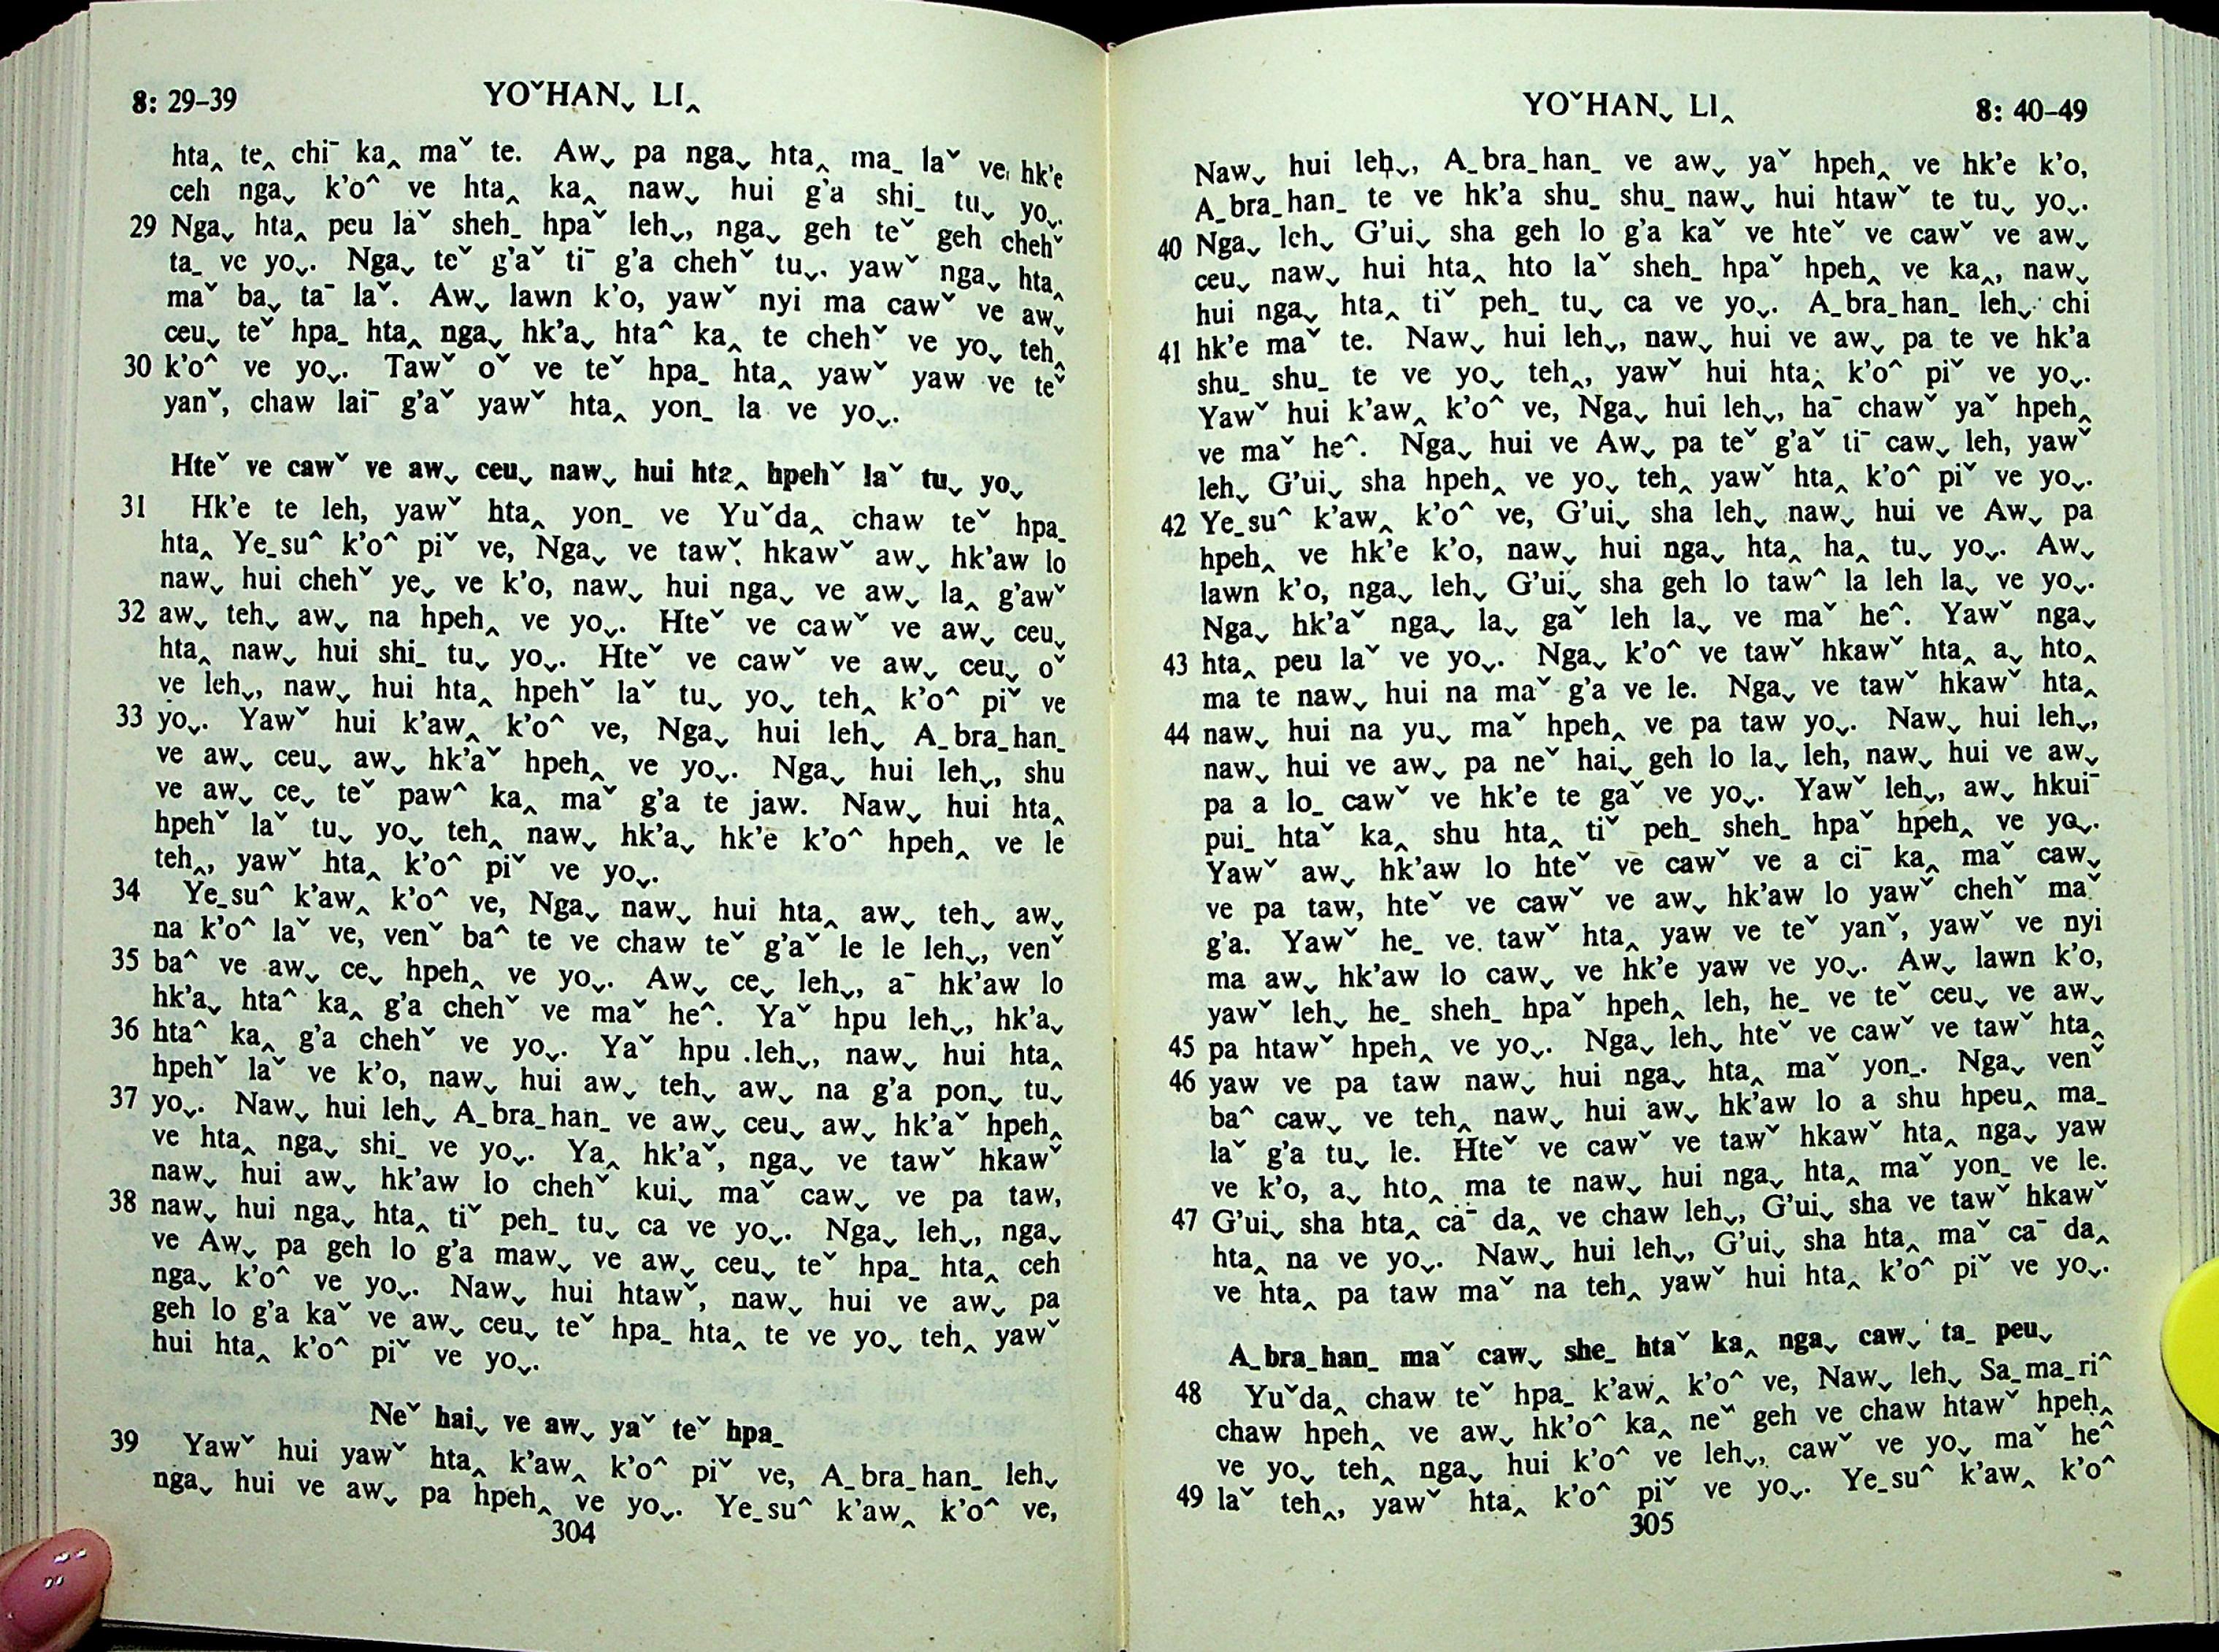 8: 29–39
YOˇHANˬ LI‸
hta‸ te‸ chiˉ ka‸ maˇ te. Awˬ pa ngaˬ hta‸ maˍ laˇ ve hk'e
ceh ngaˬ k'o^ ve hta‸ ka‸ nawˬ hui g'a shiˍ tuˬ yoˬ.
29 Ngaˬ hta‸ peu laˇ shehˍ hpaˇ lehˬ, ngaˬ geh teˇ geh chehˇ
taˍ ve yoˬ. Ngaˬ teˇ g'aˇ tiˉ g'a chehˇ tuˬ. yawˇ ngaˬ hta‸
maˇ baˬ taˉ laˇ. Awˬ lawn k'o, yawˇ nyi ma cawˇ ve awˬ
ceuˬ teˇ hpaˍ hta‸ ngaˬ hk'aˬ hta^ ka‸ te chehˇ ve yoˬ teh‸
30 k'o^ ve yoˬ. Tawˇ oˇ ve teˇ hpaˍ hta‸ yawˇ yaw ve teˇ
yanˇ, chaw laiˉ g'aˇ yawˇ hta‸ yonˍ la ve yoˬ.
Hteˇ ve cawˇ ve awˬ ceuˬ nawˬ hui hta‸ hpehˇ laˇ tuˬ yoˬ
31 Hk'e te leh, yawˇ hta‸ yonˍ ve Yuˇda‸ chaw teˇ hpaˍ
hta‸ Yeˍsu^ k'o^ piˇ ve, Ngaˬ ve tawˇ hkawˇ awˬ hk'aw lo
nawˬ hui chehˇ yeˬ ve k'o, nawˬ hui ngaˬ ve awˬ la‸ g'awˇ
32 awˬ tehˬ awˬ na hpeh‸ ve yoˬ. Hteˇ ve cawˇ ve awˬ ceuˬ
hta‸ nawˬ hui shiˍ tuˬ yoˬ. Hteˇ ve cawˇ ve awˬ ceuˬ oˇ
ve lehˬ, nawˬ hui hta‸ hpehˇ laˇ tuˬ yoˬ teh‸ k'o^ piˇ ve
33 yoˬ. Yawˇ hui k'aw‸ k'o^ ve, Ngaˬ hui lehˬ Aˍbraˍhanˍ
ve awˬ ceuˬ awˬ hk'aˇ hpeh‸ ve yoˬ. Ngaˬ hui lehˬ, shu
ve awˬ ceˬ teˇ paw^ ka‸ maˇ g'a te jaw. Nawˬ hui hta‸
hpehˇ laˇ tuˬ yoˬ teh‸ nawˬ hk'aˬ hk'e k'o^ hpeh‸ ve le
teh‸, yawˇ hta‸ k'o^ piˇ ve yoˬ.
34 Yeˍsu^ k'aw‸ k'o^ ve, Ngaˬ nawˬ hui hta‸ awˬ tehˬ awˬ
na k'o^ laˇ ve, venˇ ba^ te ve chaw teˇ g'aˇ le le lehˬ, venˇ
35 ba^ ve awˬ ceˬ hpeh‸ ve yoˬ. Awˬ ceˬ lehˬ, aˉ hk'aw lo
hk'aˬ hta^ ka‸ g'a chehˇ ve maˇ he^. Yaˇ hpu lehˬ, hk'aˬ
36 hta^ ka‸ g'a chehˇ ve yoˬ. Yaˇ hpu lehˬ, nawˬ hui hta‸
hpehˇ laˇ ve k'o, nawˬ hui awˬ tehˬ awˬ na g'a ponˬ tuˬ
37 yoˬ. Nawˬ hui lehˬ Aˍbraˍhanˍ ve awˬ ceuˬ awˬ hk'aˇ hpeh‸
ve hta‸ ngaˬ shiˍ ve yoˬ. Ya‸ hk'aˇ, ngaˬ ve tawˇ hkawˇ
nawˬ hui awˬ hk'aw lo chehˇ kuiˬ maˇ cawˬ ve pa taw,
38 nawˬ hui ngaˬ hta‸ tiˇ pehˍ tuˬ ca ve yoˬ. Ngaˬ lehˬ, ngaˬ
ve Awˬ pa geh lo g'a mawˬ ve awˬ ceuˬ teˇ hpaˍ hta‸ ceh
ngaˬ k'o^ ve yoˬ. Nawˬ hui htawˇ, nawˬ hui ve awˬ pa
geh lo g'a kaˇ ve awˬ ceuˬ teˇ hpaˍ hta‸ te ve yoˬ teh‸ yawˇ
hui hta‸ k'o^ piˇ ve yoˬ.
Neˇ haiˬ ve awˬ yaˇ teˇ hpaˍ
39 Yawˇ hui yawˇ hta‸ k'aw‸ k'o^ piˇ ve, Aˍbraˍhanˍ lehˬ
ngaˬ hui ve awˬ pa hpeh‸ ve yoˬ. Yeˍsu^ k'aw‸ k'o^ ve,
304
YOˇHANˬ LI‸
8: 40–49
Nawˬ hui lehˬ, Aˍbraˍhanˍ ve awˬ yaˇ hpeh‸ ve hk'e k'o,
Aˍbraˍhanˍ te ve hk'a shuˍ shuˍ nawˬ hui htawˇ te tuˬ yoˬ.
40 Ngaˬ lehˬ G'uiˬ sha geh lo g'a kaˇ ve hteˇ ve cawˇ ve awˬ
ceuˬ nawˬ hui hta‸ hto laˇ shehˍ hpaˇ hpeh‸ ve ka‸, nawˬ
hui ngaˬ hta‸ tiˇ pehˍ tuˬ ca ve yoˬ. Aˍbraˍhanˍ lehˬ chi
41 hk'e maˇ te. Nawˬ hui lehˬ, nawˬ hui ve awˬ pa te ve hk'a
shuˍ shuˍ te ve yoˬ teh‸, yawˇ hui hta‸ k'o^ piˇ ve yoˬ.
Yawˇ hui k'aw‸ k'o^ ve, Ngaˬ hui lehˬ, haˉ chawˇ yaˇ hpeh‸
ve maˇ he^. Ngaˬ hui ve Awˬ pa teˇ g'aˇ tiˉ cawˬ leh, yawˇ
lehˬ G'uiˬ sha hpeh‸ ve yoˬ teh‸ yawˇ hta‸ k'o^ piˇ ve yoˬ.
42 Yeˍsu^ k'aw‸ k'o^ ve, G'uiˬ sha lehˬ nawˬ hui ve Awˬ pa
hpeh‸ ve hk'e k'o, nawˬ hui ngaˬ hta‸ ha‸ tuˬ yoˬ. Awˬ
lawn k'o, ngaˬ lehˬ G'uiˬ sha geh lo taw^ la leh laˬ ve yoˬ.
Ngaˬ hk'aˇ ngaˬ laˬ gaˇ leh laˬ ve maˇ he^. Yawˇ ngaˬ
43 hta‸ peu laˇ ve yoˬ. Ngaˬ k'o^ ve tawˇ hkawˇ hta‸ aˬ hto‸
ma te nawˬ hui na maˇ g'a ve le. Ngaˬ ve tawˇ hkawˇ hta‸
44 nawˬ hui na yuˬ maˇ hpeh‸ ve pa taw yoˬ. Nawˬ hui lehˬ,
nawˬ hui ve awˬ pa neˇ haiˬ geh lo laˬ leh, nawˬ hui ve awˬ
pa a loˍ cawˇ ve hk'e te gaˇ ve yoˬ. Yawˇ lehˬ, awˬ hkuiˉ
puiˍ htaˇ ka‸ shu hta‸ tiˇ pehˍ shehˍ hpaˇ hpeh‸ ve yoˬ.
Yawˇ awˬ hk'aw lo hteˇ ve cawˇ ve a ciˉ ka‸ maˇ cawˬ
ve pa taw, hteˇ ve cawˇ ve awˬ hk'aw lo yawˇ chehˇ maˇ
g'a. Yawˇ heˍ ve tawˇ hta‸ yaw ve teˇ yanˇ, yawˇ ve nyi
ma awˬ hk'aw lo cawˬ ve hk'e yaw ve yoˬ. Awˬ lawn k'o,
yawˇ lehˬ heˍ shehˍ hpaˇ hpeh‸ leh, heˍ ve teˇ ceuˬ ve awˬ
45 pa htawˇ hpeh‸ ve yoˬ. Ngaˬ lehˬ hteˇ ve cawˇ ve tawˇ hta‸
46 yaw ve pa taw nawˬ hui ngaˬ hta‸ maˇ yonˍ. Ngaˬ venˇ
ba^ cawˬ ve teh‸ nawˬ hui awˬ hk'aw lo a shu hpeu‸ maˍ
laˇ g'a tuˬ le. Hteˇ ve cawˇ ve tawˇ hkawˇ hta‸ ngaˬ yaw
ve k'o, aˬ hto‸ ma te nawˬ hui ngaˬ hta‸ maˇ yonˍ ve le.
47 G'uiˬ sha hta‸ caˉ da‸ ve chaw lehˬ, G'uiˬ sha ve tawˇ hkawˇ
hta‸ na ve yoˬ. Nawˬ hui lehˬ, G'uiˬ sha hta‸ maˇ caˉ da‸
ve hta‸ pa taw maˇ na teh‸ yawˇ hui hta‸ k'o^ piˇ ve yoˬ.
Aˍbraˍhanˍ maˇ cawˬ sheˍ htaˇ ka‸ ngaˬ cawˬ taˍ peuˬ
48 Yuˇda‸ chaw teˇ hpaˍ k'aw‸ k'o^ ve, Nawˬ lehˬ Saˍmaˍri^
chaw hpeh‸ ve awˬ hk'o^ ka‸ neˇ geh ve chaw htawˇ hpeh‸
ve yoˬ teh‸ ngaˬ hui k'o^ ve lehˬ, cawˇ ve yoˬ maˇ he^
49 laˇ teh‸, yawˇ hta‸ k'o^ piˇ ve yoˬ. Yeˍsu^ k'aw‸ k'o^
305